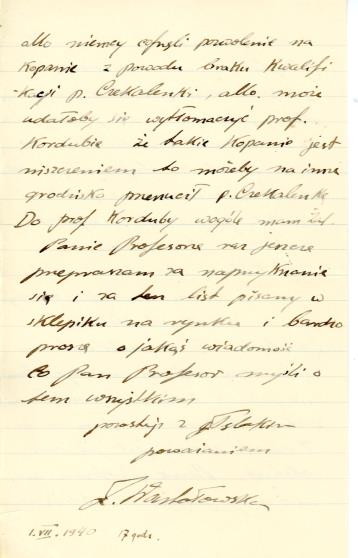 albo niemcy cofnęli pozwolenie na
kopanie z powodu braku kwalifi
-kacji p. Czekalenki, albo może
udałoby się wytłomaczyć prof.
Kordubie że takie kopanie jest
niszczeniem to możeby na inne
grodzisko przenucił p. Czekalenkę
Do prof Korduby wogóle mam żal.
Panie Profesorze raz jeszcze
przepraszam za naprzykrzanie
się i za ten list pisany w
sklepiku na rynku i bardzo
proszę o jakąś wiadomość
co Pan Profesor myśli o
tem wszystkim
pozostaję z
poważaniem
1. VII. 1940 17 godz.